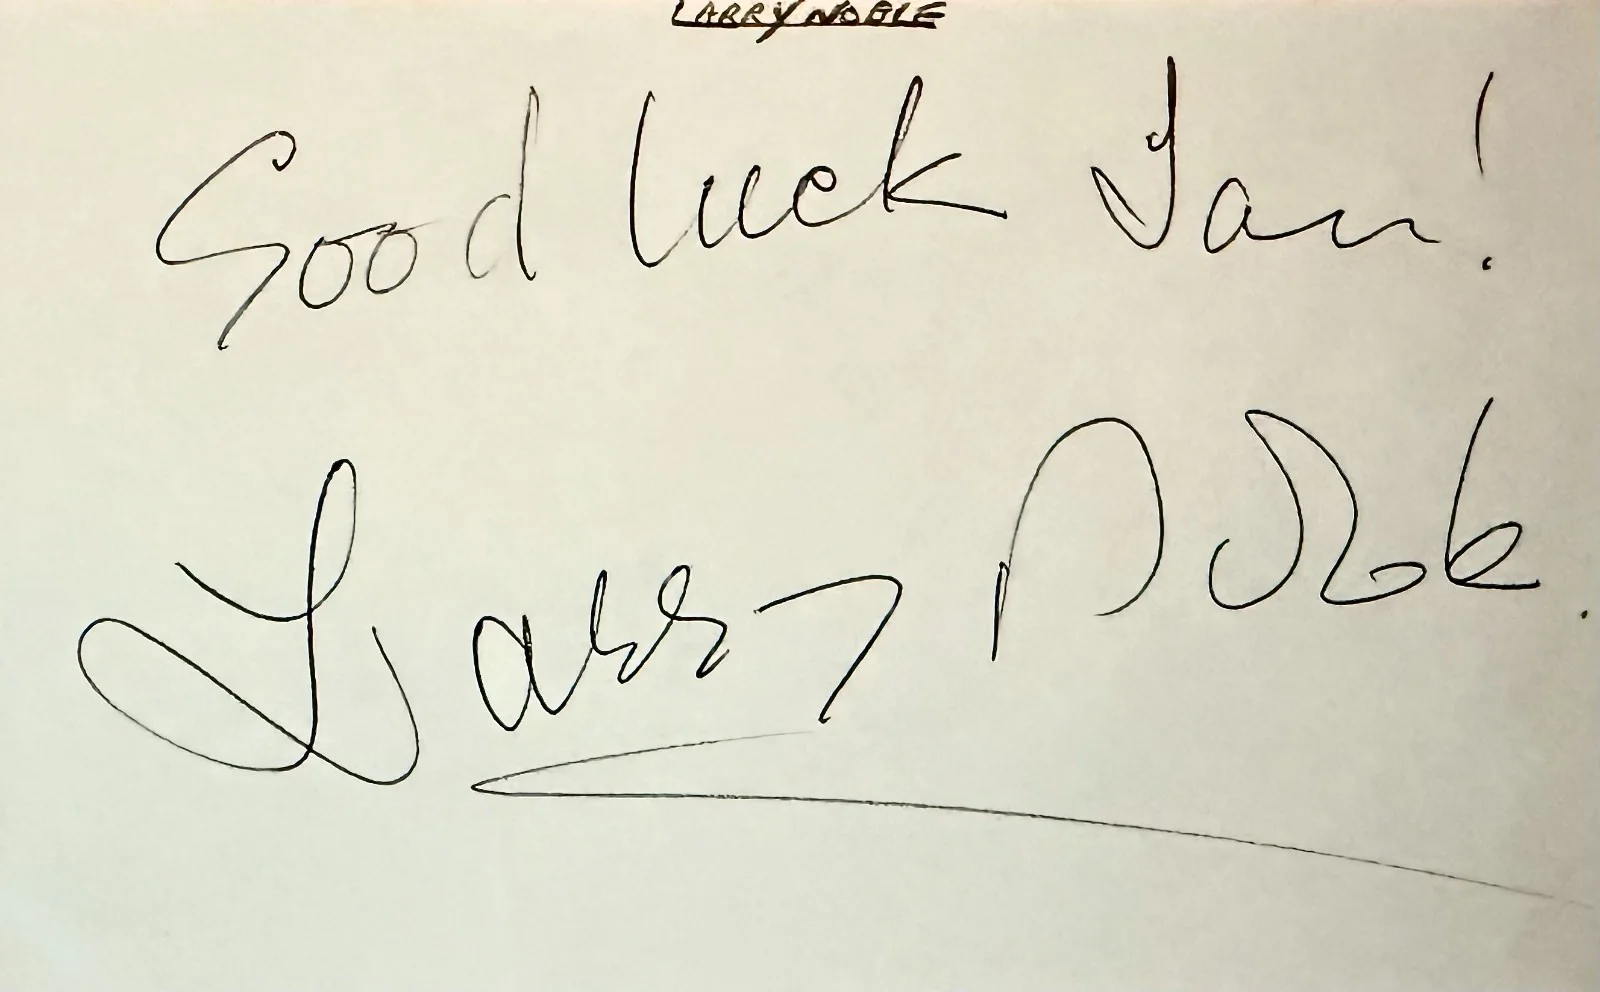 LARRY NOBLE
Good luck Ian!
Larry Noble.